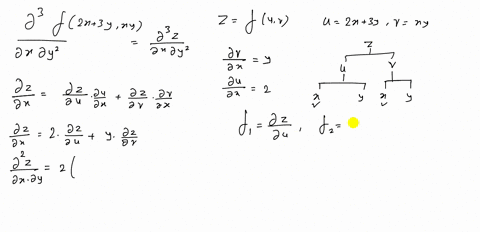 ∂³ f(2x+3y, xy) / ∂x ∂y² = ∂³z / ∂x ∂y²
z = f(u,v)
u = 2x+3y, v = xy
∂v/∂x = y
∂u/∂x = 2
z
u v
x y x y
∂z/∂x = ∂z/∂u · ∂u/∂x + ∂z/∂v · ∂v/∂x
∂z/∂x = 2 · ∂z/∂u + y · ∂z/∂v
f₁ = ∂z/∂u , f₂ =
∂²z/∂x·∂y = 2 (